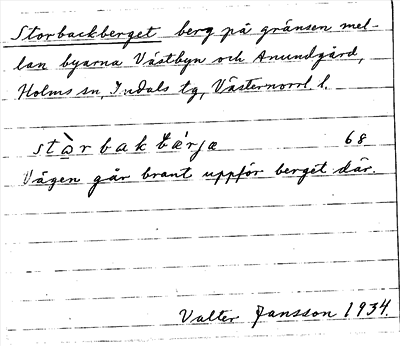 Storbackberget berg på gränsen mel-
lan byarna Västbyn och Anundgård,
Holms sn, Indals tg, Västernorrl l.
stòrbakbærjæ 68
Vägen går brant uppför berget där.
Valter Jansson 1934.